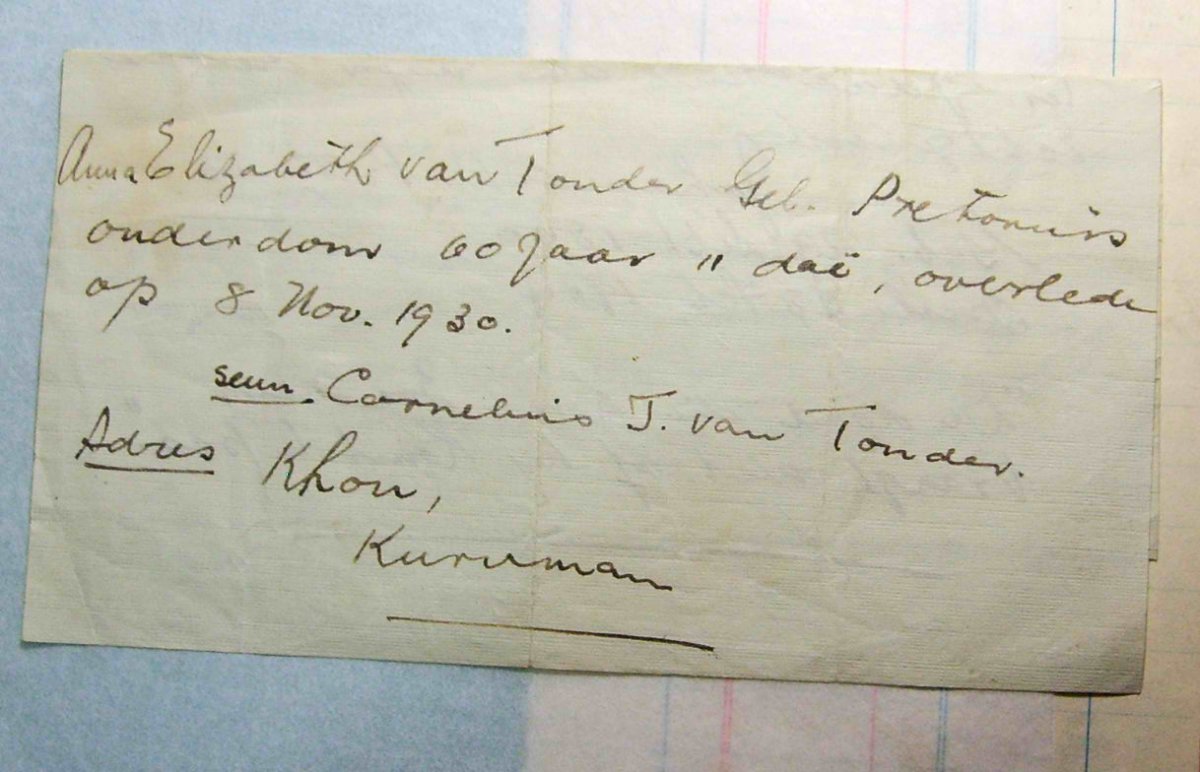 Anna Elizabeth van Tonder Geb. Pretorius
onderdom 60 jaar 11 daë, overlede
op 8 Nov. 1930.
seun. Cornelius J. van Tonder.
Adres Khon,
Kuruman